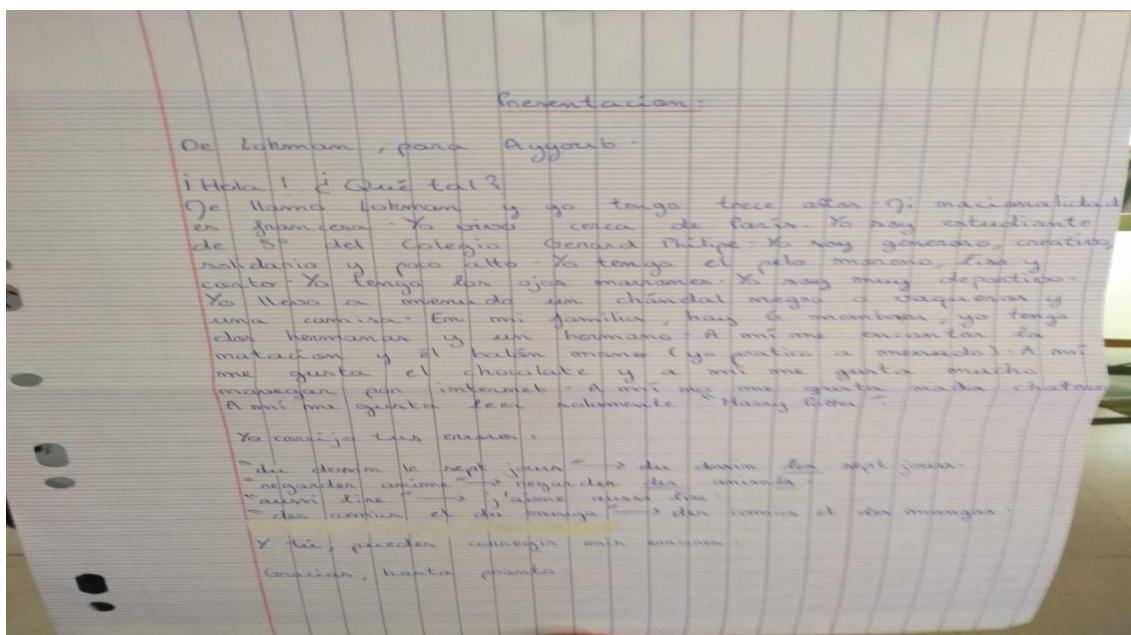 Presentacion :
De Lokmam, para Ayyoub.
¡Hola! ¿Qué tal?
Me llamo Lokmam y yo tengo trece años. Mi nacionalidad
es francesa. Yo vivo cerca de París. Yo soy estudiante
de 5º del Colegio Gerard Philipe. Yo soy generoso, creativo,
solidario y poco alto. Yo tengo el pelo moreno, liso y
corto. Yo tengo los ojos marrones. Yo soy muy deportivo.
Yo llevo a menudo un chándal negro o vaqueros y
una camisa. En mi familia, hay 6 miembros, yo tengo
dos hermanas y un hermano. A mí me encantan la
natacion y el balón mano (yo pratico a menudo). A mí
me gusta el chocolate y a mí me gusta mucho
navegar por internet. A mí no me gusta nada chatear.
A mí me gusta leer solamente "Harry Potter".
Yo corrijo tus errores :
"du dessin le sept jours" → du dessin les sept jours.
"regarder anime" → regarder des animés.
"aussi lire" → j'aime aussi lire.
"des comics et du manga" → des comics et des mangas.
Y tú, puedes corregir mis errores.
Gracias, hasta pronto.